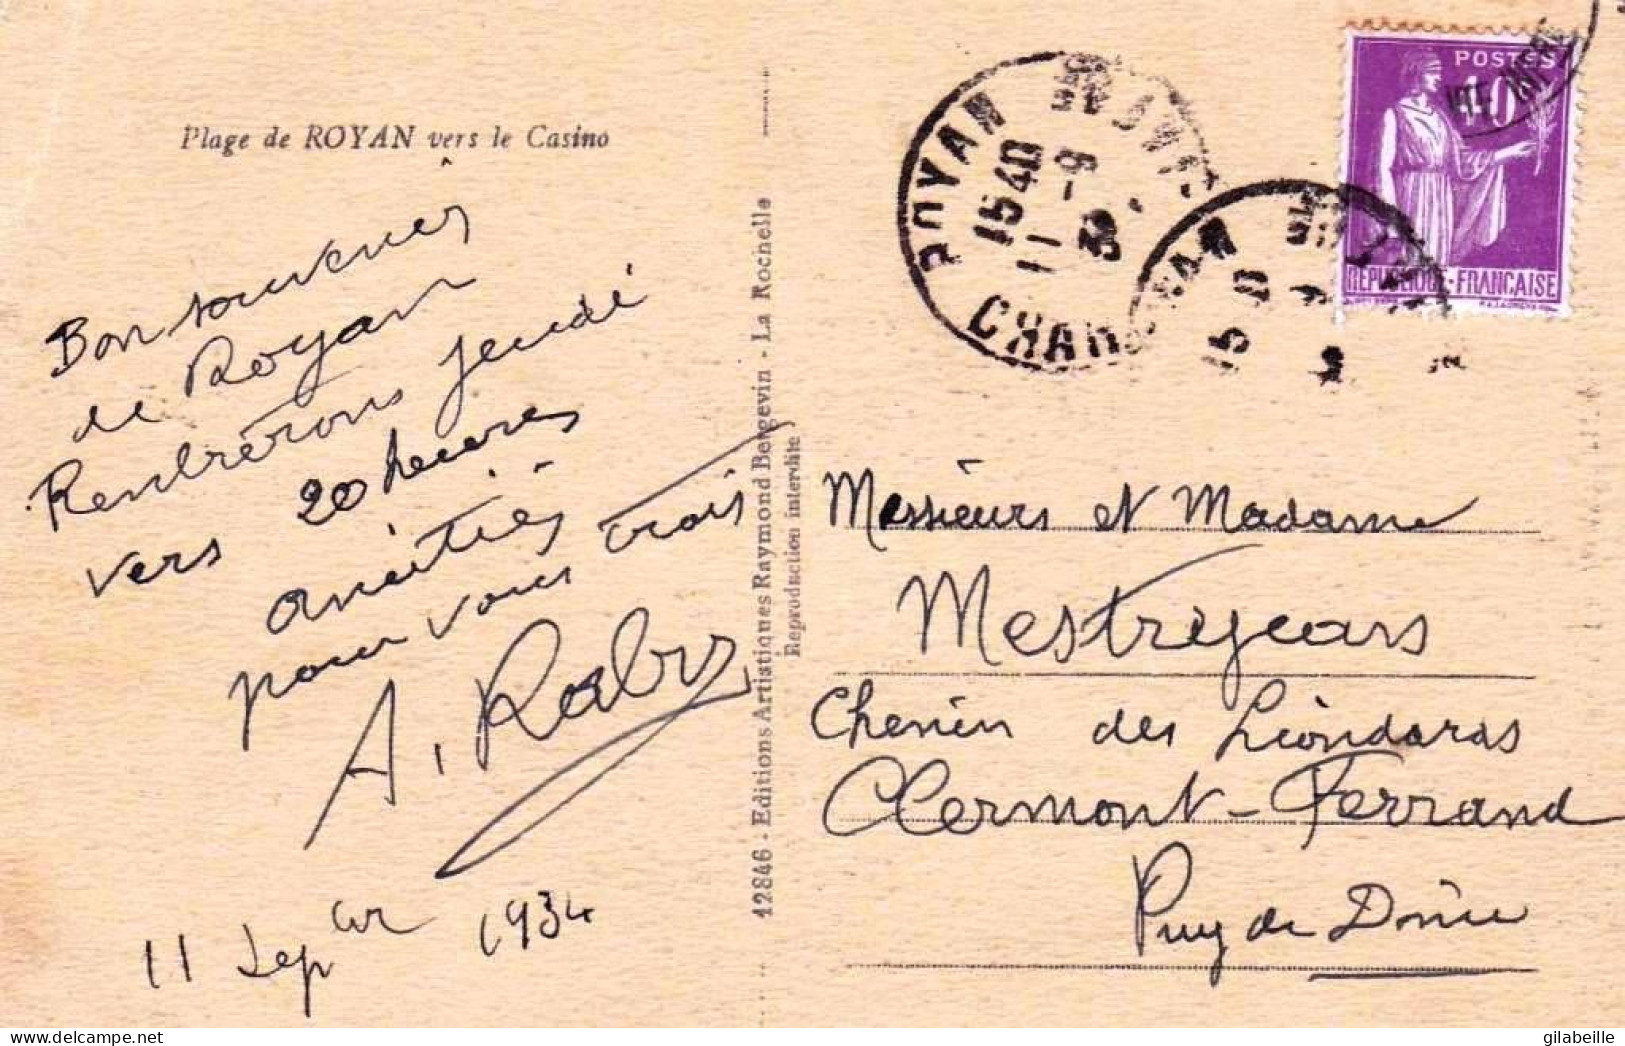 Plage de ROYAN vers le Casino
Bon souvenir
de Royan
Rentrerons jeudi
vers 20 heures
amitiés
pour vous trois
A. Rabs
11 Sepbre 1934
12846 - Editions Artistiques Raymond Bergevin - La Rochelle
Reproduction interdite
ROYAN
15 40
11 -9
CHAR
POSTES
40
REPUBLIQUE-FRANÇAISE
Messieurs et Madame
Mestrejeans
Chemin des Liondards
Clermont-Ferrand
Puy de Dôme
Delcampe.net
gilabeille